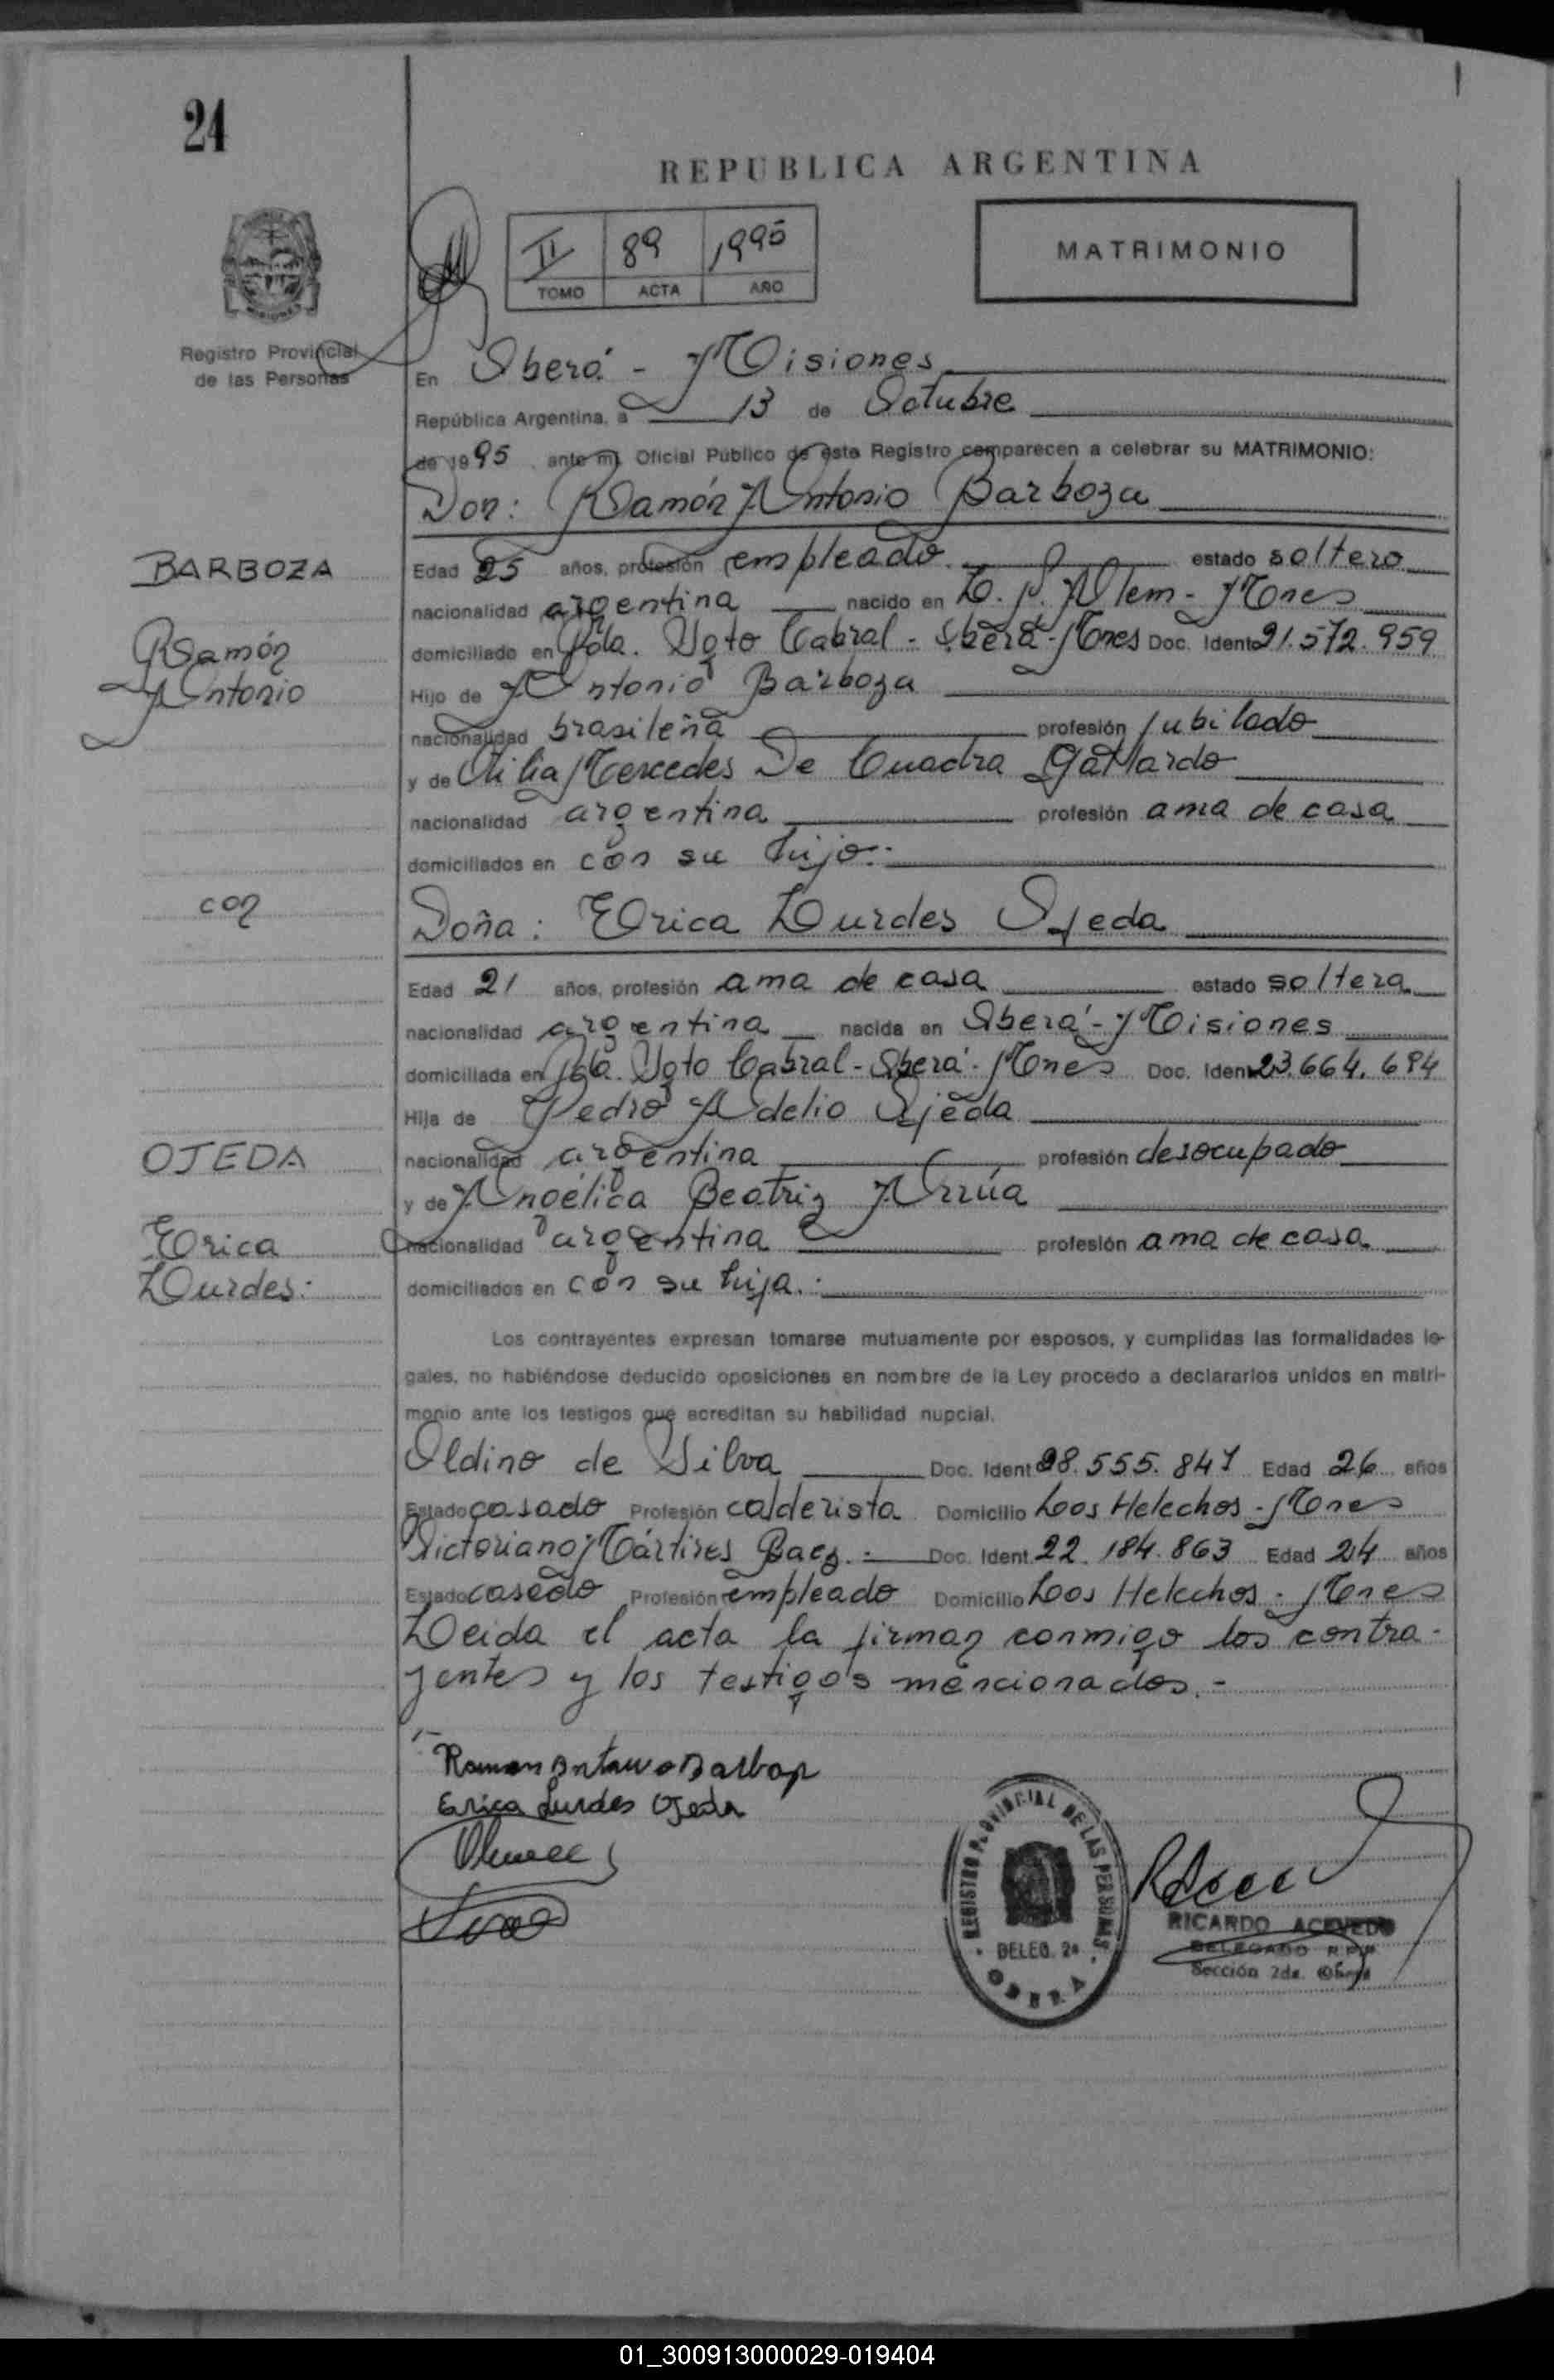 24
REPUBLICA ARGENTINA
II 89 1995
TOMO ACTA AÑO
MATRIMONIO
Registro Provincial
de las Personas
En Oberá - Misiones
República Argentina, a 13 de Octubre
de 1995, ante mi Oficial Público de este Registro comparecen a celebrar su MATRIMONIO:
Don: Ramón Antonio Barboza
BARBOZA
Ramón
Antonio
Edad 25 años, profesión empleado estado soltero
nacionalidad argentina nacido en L. N. Alem - Mnes
domiciliado en Pda. Sgto Cabral - Oberá - Mnes Doc. Ident. 21.572.959
Hijo de Antonio Barboza
nacionalidad brasileña profesión jubilado
y de Mercedes De Cuadra Gallardo
nacionalidad argentina profesión ama de casa
domiciliados en con su hijo.-
con
Doña: Erica Lurdes Ojeda
Edad 21 años, profesión ama de casa estado soltera
nacionalidad argentina nacida en Oberá - Misiones
domiciliada en Pda. Sgto Cabral - Oberá - Mnes Doc. Ident. 23.664.694
Hija de Pedro Adelio Ojeda
OJEDA
Erica
Lurdes:
nacionalidad argentina profesión desocupado
y de Angélica Beatriz Arrúa
nacionalidad argentina profesión ama de casa
domiciliados en con su hija.-
Los contrayentes expresan tomarse mutuamente por esposos, y cumplidas las formalidades le-
gales, no habiéndose deducido oposiciones en nombre de la Ley procedo a declararlos unidos en matri-
monio ante los testigos que acreditan su habilidad nupcial.
Oldino de Silva Doc. Ident. 28.555.847 Edad 26 años
Estado casado Profesión calderista Domicilio Los Helechos - Mnes
Victoriano Mártires Baez.- Doc. Ident. 22.184.863 Edad 24 años
Estado casado Profesión empleado Domicilio Los Helechos - Mnes
Leida el acta la firman conmigo los contra-
yentes y los testigos mencionados.-
Ramon Antonio Barboza
Erica Lurdes Ojeda
REGISTRO PROVINCIAL DE LAS PERSONAS
DELEG. 2a
OBERA
RICARDO ACEVEDO
DELEGADO R.P.P.
Sección 2da. Oberá
01_300913000029-019404